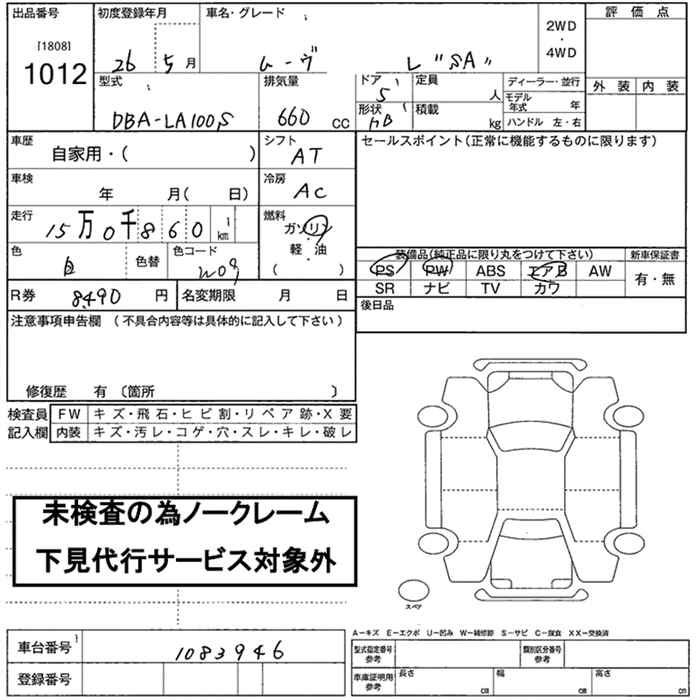 出品番号
[1808]
1012
初度登録年月
26 5月
車名・グレード
ムーヴ L "SA"
2WD
・
4WD
評価点
外装 内装
型式
DBA-LA100S
排気量
660 CC
ドア
5
定員
人
形状
HB
積載
kg
ディーラー・並行
モデル年式 年
ハンドル 左・右
車歴
自家用・( )
シフト
AT
車検
年 月( 日)
冷房
AC
走行
15万0千860 km
燃料
ガソリン
軽・油
( )
色
白
色替
色コード
W09
R券 8490 円
名変期限 月 日
セールスポイント(正常に機能するものに限ります)
装備品(純正品に限り丸をつけて下さい)
新車保証書
PS PW ABS エアB AW
SR ナビ TV カワ
有・無
後日品
注意事項申告欄 (不具合内容等は具体的に記入して下さい)
修復歴 有 〔箇所 〕
検査員記入欄
FW キズ・飛石・ヒビ割・リペア跡・X要
内装 キズ・汚レ・コゲ・穴・スレ・キレ・破レ
未検査の為ノークレーム
下見代行サービス対象外
スペア
車台番号 1083946
登録番号
A-キズ E-エクボ U-凹み W-補修跡 S-サビ C-腐食 XX-交換済
型式指定番号
参考
類別区分番号
参考
車庫証明用
参考
長さ cm
幅 cm
高さ cm